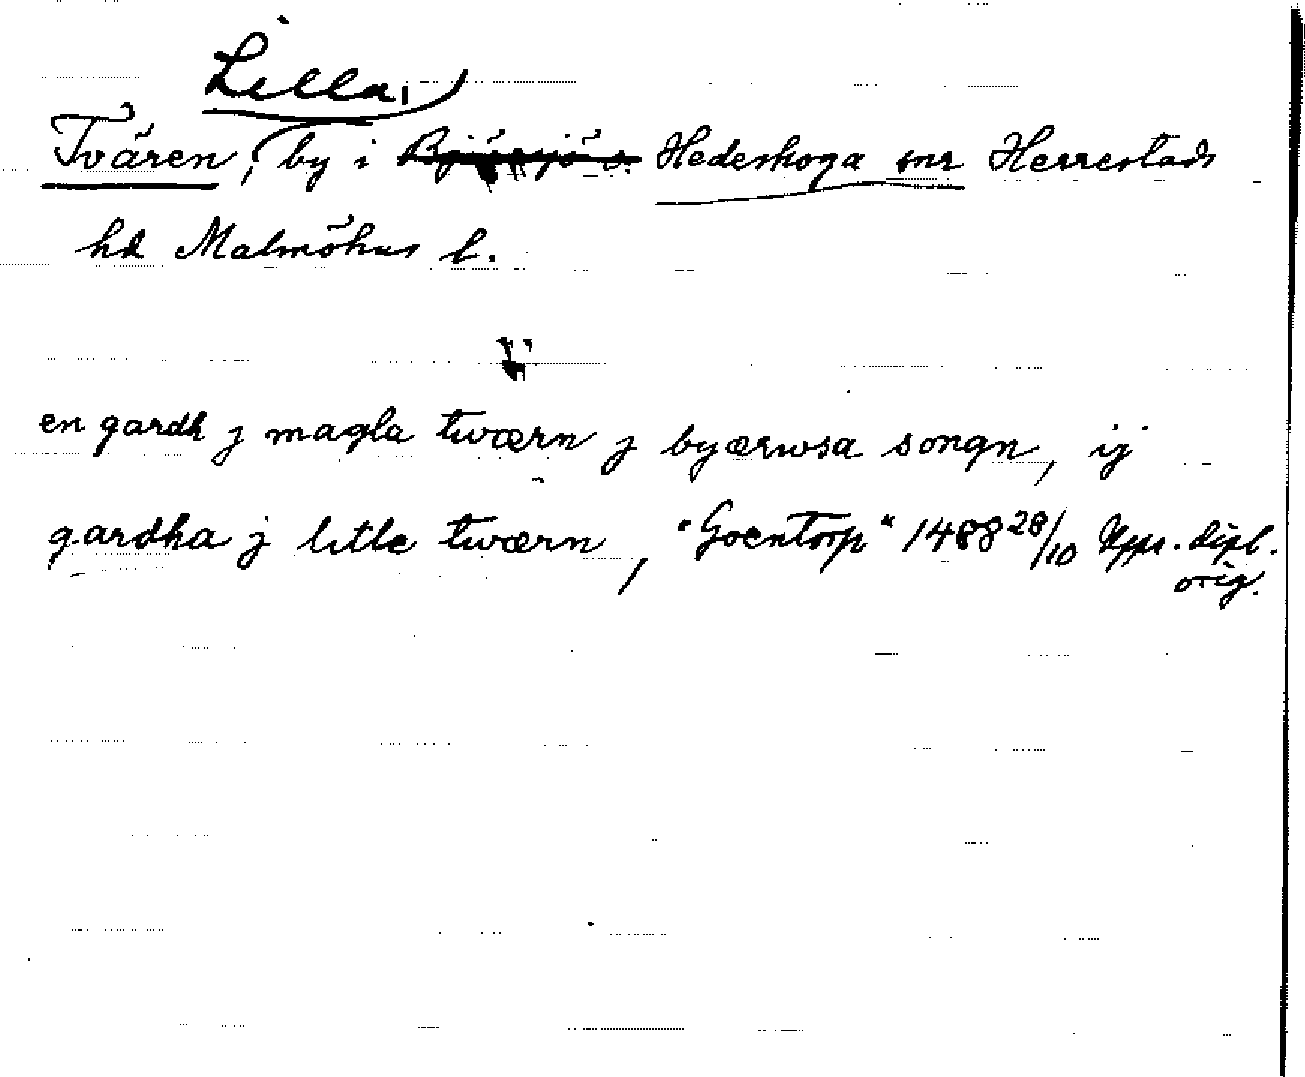 Lilla,
Tvären, by i Bjäresjö s. Hedeskoga snr Herrestads
hd Malmöhus l.
en gardh j magla twærn j byærwsa songn, ij
gardha j litle twærn, "Goentorp" 1488 28/10 Uppr. dipl.
orig.